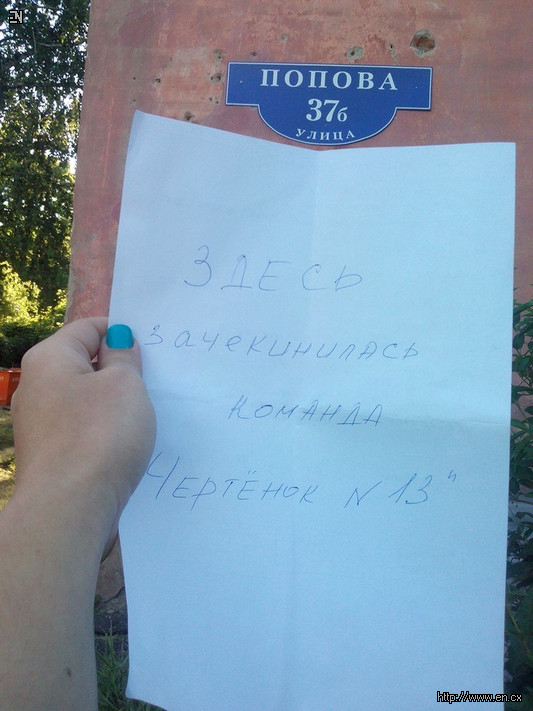 EN
ПОПОВА
37б
УЛИЦА
ЗДЕСЬ
зачекинилась
команда
Чертёнок N 13"
http://www.en.cx